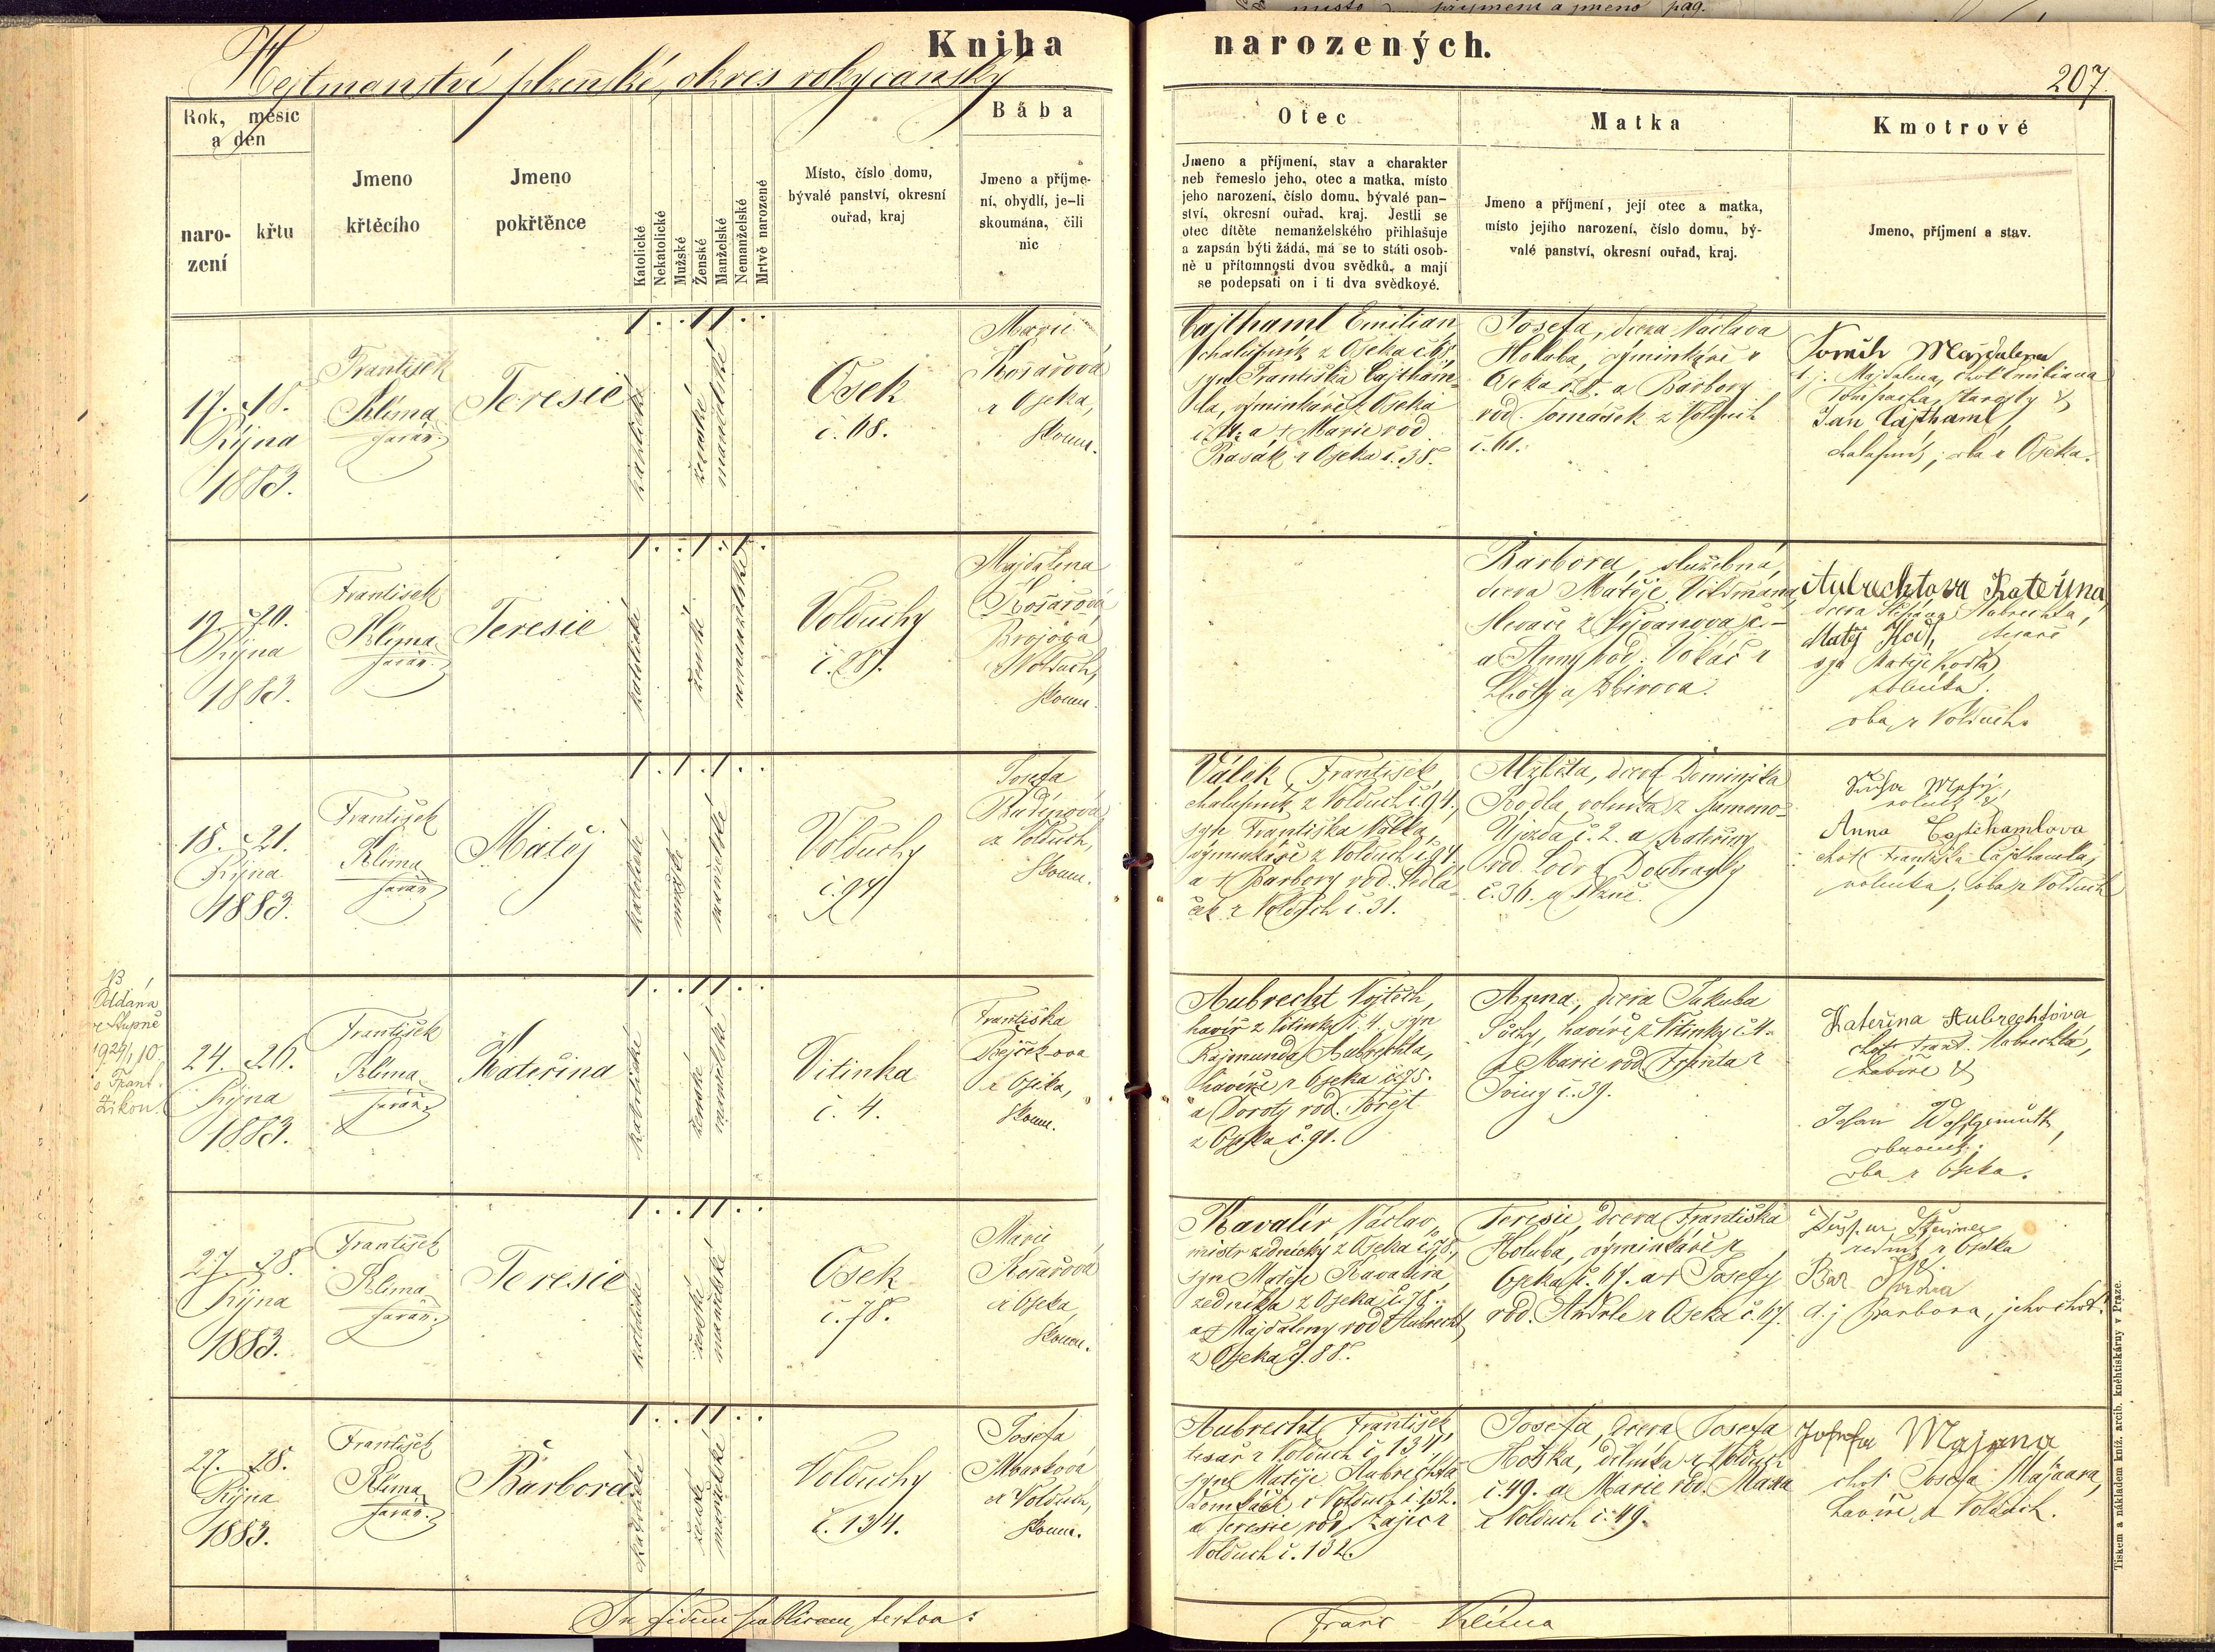 Kniha narozených.
Hejtmanství plzeňské, okres rokycanský
207.
Rok, měsíc
a den
narození
křtu
Jmeno
křtěcího
Jmeno
pokřtěnce
Katolické
Nekatolické
Mužské
Ženské
Manželské
Nemanželské
Mrtvě narozené
Místo, číslo domu,
bývalé panství, okresní
ouřad, kraj
Bába
Jmeno a příjme-
ní, obydlí, je-li
skoumána, čili
nic
Otec
Jmeno a příjmení, stav a charakter
neb řemeslo jeho, otec a matka, místo
jeho narození, číslo domu, bývalé pan-
ství, okresní ouřad, kraj. Jestli se
otec dítěte nemanželského přihlašuje
a zapsán býti žádá, má se to státi osob-
ně u přítomnosti dvou svědků, a mají
se podepsati on i ti dva svědkové.
Matka
Jmeno a příjmení, její otec a matka,
místo jejího narození, číslo domu, bý-
valé panství, okresní ouřad, kraj.
Kmotrové
Jmeno, příjmení a stav.
17. 18.
Října
1883.
František
Klima
farář.
Teresie
katolické
ženské
manželské
Osek
č. 68.
Marie
Kosařová
z Oseka,
skoum.
Cajthaml Emilian,
chalupník z Oseka č. 68,
syn Františka Cajtham-
la, výminkáře z Oseka
a † Marie rod.
z Oseka č. 38.
Josefa, dcera Václava
Holuba, výminkáře z
Oseka a Barbory
rod. Tomášek z Volduch
č. 61.
Majdalena
t. j. Majdalena, choť Emiliana
starosty &
Jan Cajthaml,
chalupník, oba z Oseka.
19. 20.
Října
1883.
František
Klima
farář.
Teresie
katolické
ženské
nemanželské
Volduchy
č. 28.
Majdalena
Kosařová
z Volduch,
skoum.
Barbora, služebná,
dcera Matěje Vildmana,
slevače z
a Anny rod. Vokáč z
Lhoty u Zbirova.
Aubrechtova Kateřina,
dcera Štěpána Aubrechta,
Matěj
syn Matěje
rolníka.
oba z Volduch.
18. 21.
Října
1883.
František
Klima
farář
Matěj
katolické
mužské
manželské
Volduchy
č. 94
Josefa
Rudinová
z Volduch,
skoum.
Válek František,
chalupník z Volduch č. 94,
syn Františka Válka,
výminkáře z Volduch č. 94.
a † Barbory rod. Sedlá-
ček z Volduch č. 31.
Alžběta, dcera Dominika
rolníka z
Újezda č. 2. a Kateřiny
rod. Lodr z Doubravky
č. 36. u Plzně.
Matěj,
rolník &
Anna Cajthamlova
choť Františka Cajthamla,
rolníka, oba z Volduch
NB
Oddána
v Stupně
1924/, 10.
s Frant.
24. 26.
Října
1883.
František
Klima
farář.
Kateřina
katolické
ženské
manželské
Vitinka
č. 4.
Františka
z Oseka,
skoum.
Aubrecht Vojtěch,
havíř z Vitinky č. 4. syn
Rajmunda Aubrechta,
havíře z Oseka č. 75.
a Doroty rod.
z Oseka č. 91.
Anna, dcera Jakuba
Sochy, havíře z Vitinky č. 4.
a Marie rod. z
č. 39.
Kateřina Aubrechtova
choť Frant. Aubrechta,
havíře &
oba z Oseka.
27. 28.
Října
1883.
František
Klima
farář.
Teresie
katolické
ženské
manželské
Osek
č. 78.
Marie
Kosařová
z Oseka,
skoum.
Kavalír Václav,
mistr zednický z Oseka č. 78,
syn Matěje Kavalíra,
zedníka z Oseka č. 78.
a † Majdaleny rod. Aubrecht
z Oseka č. 88.
Teresie, dcera Františka
Holuba, výminkáře z
Oseka č. 67. a † Josefy
rod. Andrle z Oseka č. 67.
z Oseka
t. j. Barbora, jeho choť.
27. 28.
Října
1883.
František
Klima
farář.
Barbora
katolické
ženské
manželské
Volduchy
č. 134.
Josefa
z Volduch,
skoum.
Aubrecht František
tesař z Volduch č. 134,
syn Matěje Aubrechta
z Volduch č. 132.
a Teresie rod. Zajíc z
Volduch č. 132.
Josefa, dcera Josefa
Hoška, dělníka z Volduch
č. 49. a Marie rod.
z Volduch č. 49.
Josefa
choť Josefa
havíře z Volduch.
In fidem publicam testor:
Franc Klima
Tiskem a nákladem kníž. arcib. kněhtiskárny v Praze.